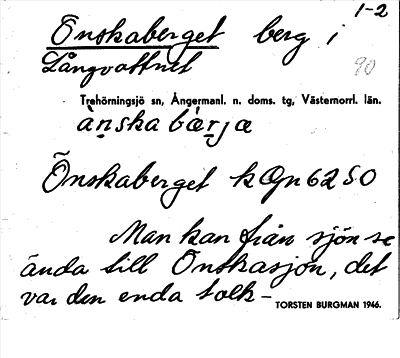 1-2
Önskaberget berg i
Långvattnet
90
Trehörningsjö sn, Ångermanl. n. doms. tg, Västernorrl. län.
ànskabærjæ
Önskaberget k Gn 62 S0
Man kan från sjön se
ända till Önskasjön, det
var den enda tolk-
TORSTEN BURGMAN 1946.